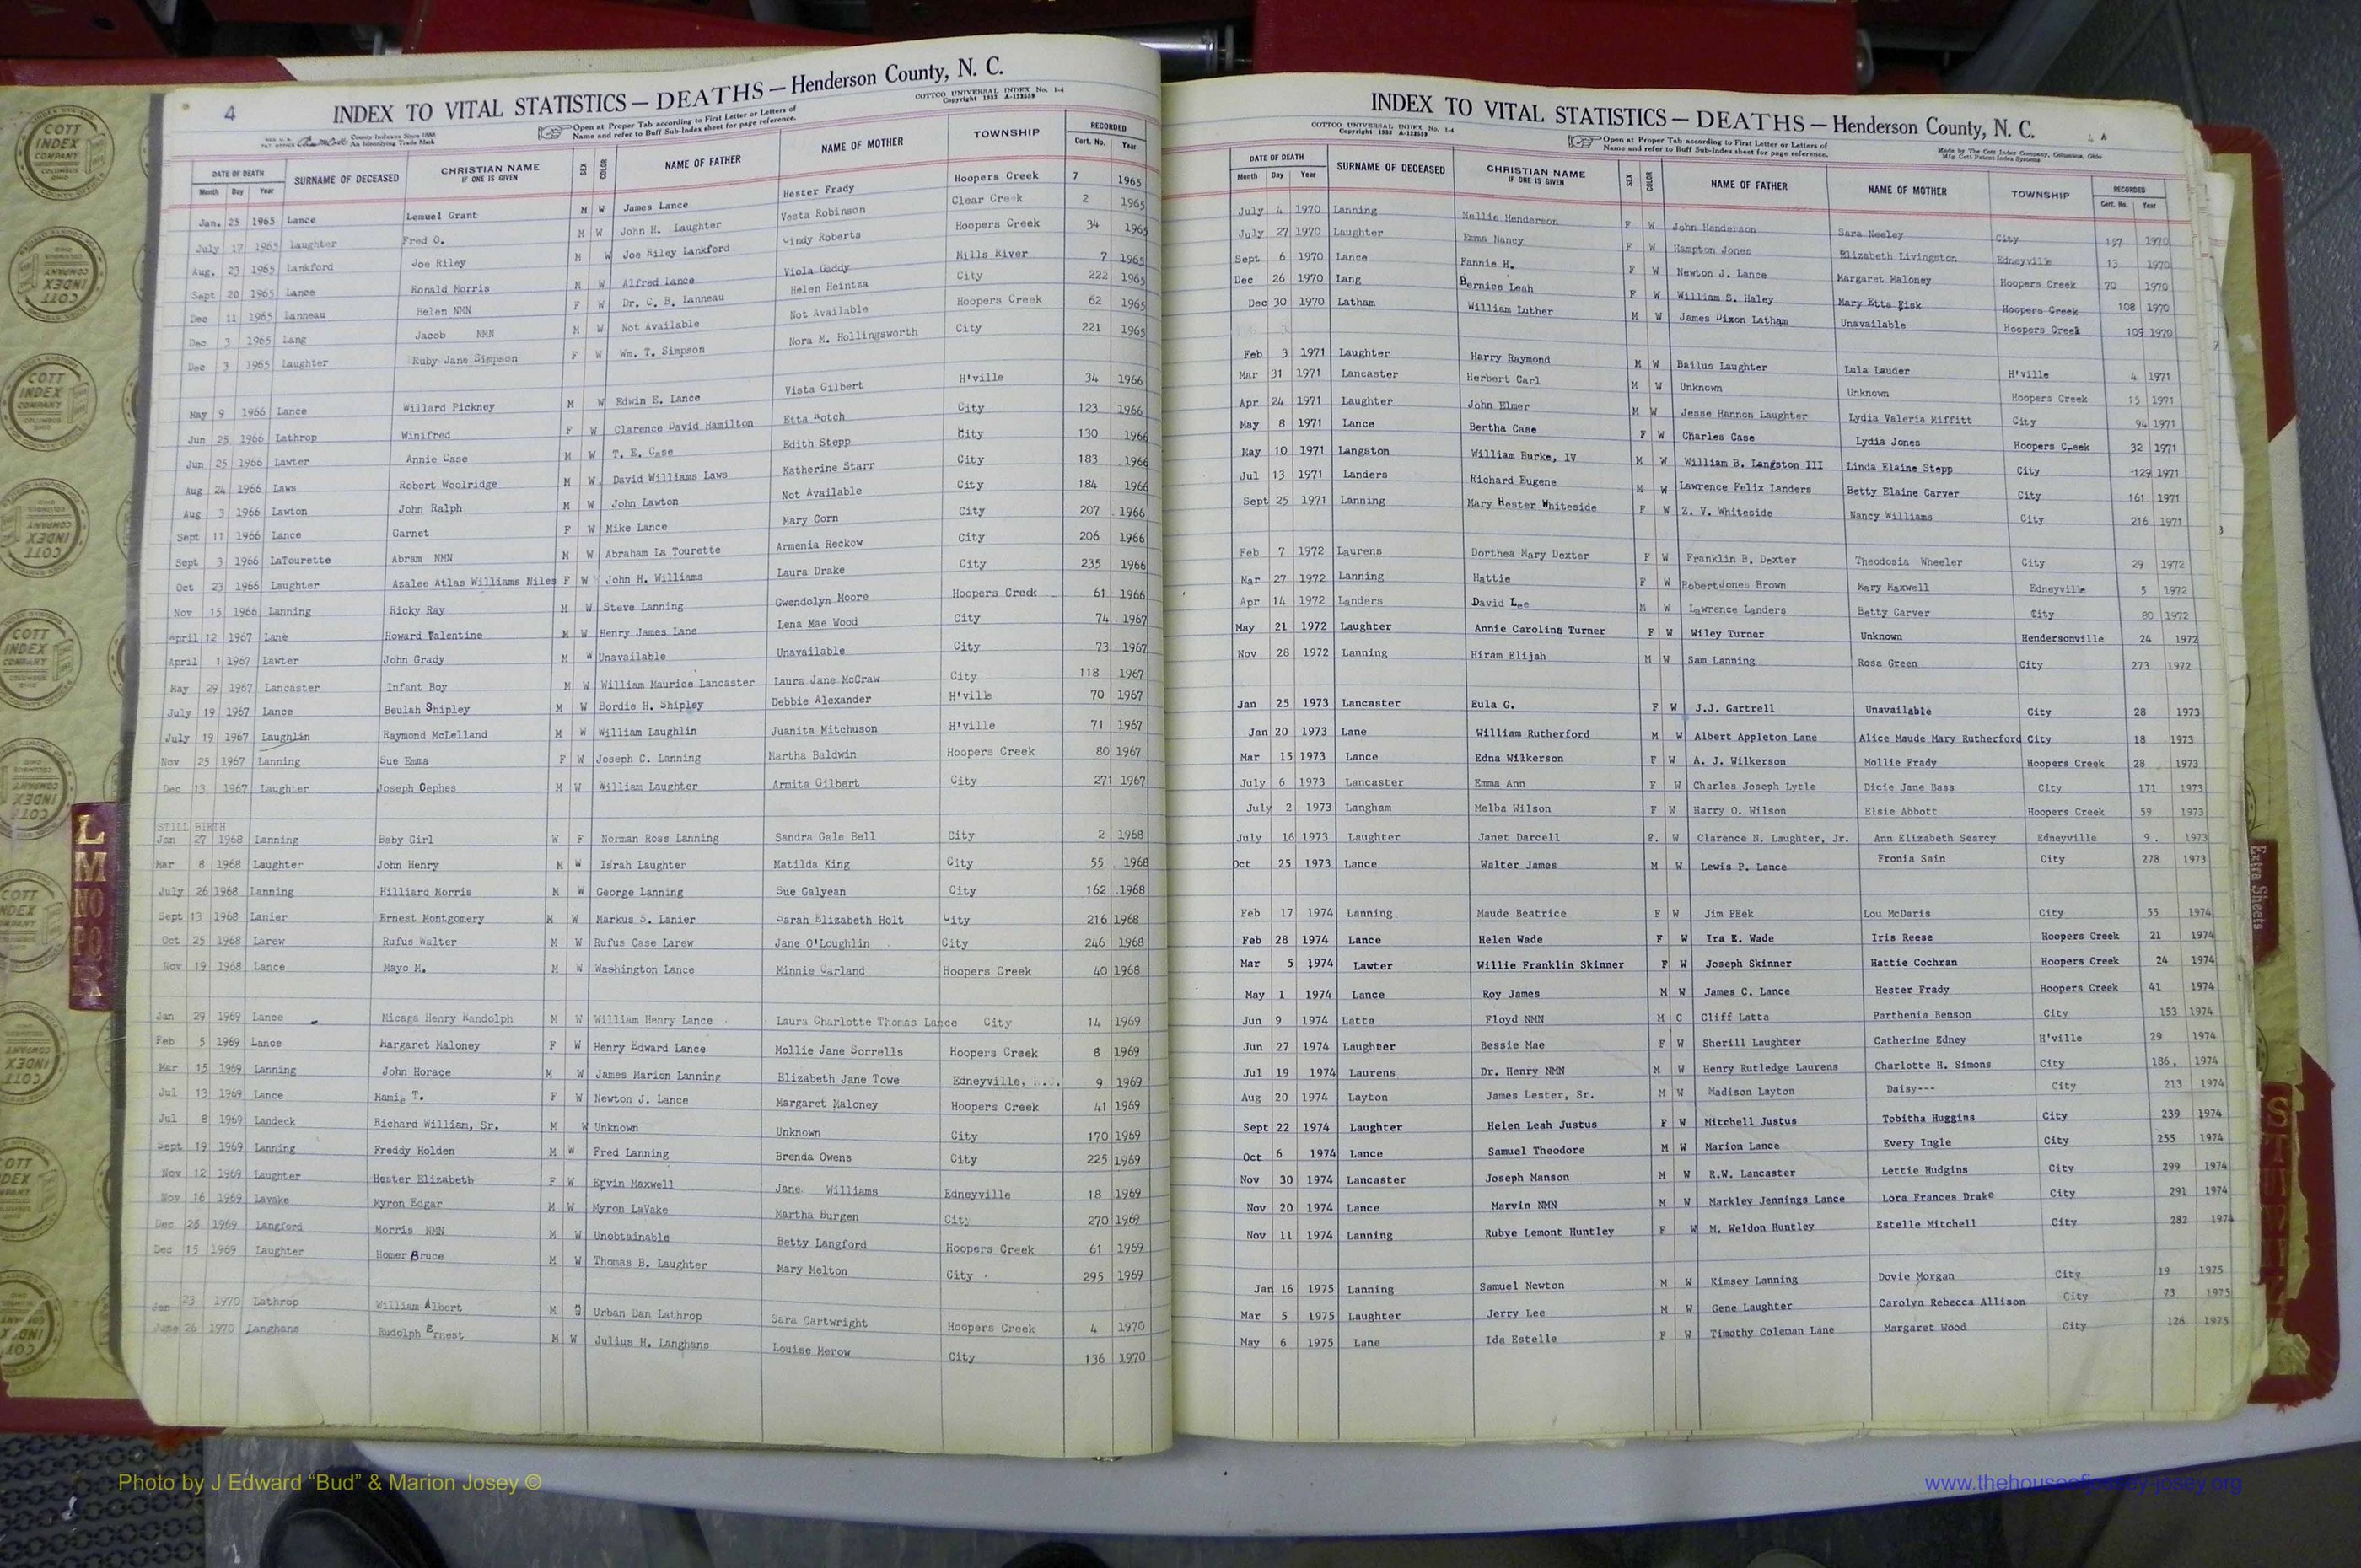 4
INDEX TO VITAL STATISTICS — DEATHS — Henderson County, N. C.
COTTCO UNIVERSAL INDEX No. 1-4
Copyright 1933 A-123559
County Indexes Since 1888
An Identifying Trade Mark
Open at Proper Tab according to First Letter or Letters of
Name and refer to Buff Sub-Index sheet for page reference.
DATE OF DEATH SURNAME OF DECEASED CHRISTIAN NAME IF ONE IS GIVEN SEX COLOR NAME OF FATHER NAME OF MOTHER TOWNSHIP RECORDED
Month Day Year Cert. No. Year
Jan. 25 1965 Lance Lemuel Grant M W James Lance Hester Frady Hoopers Creek 7 1965
July 17 1965 Laughter Fred O. M W John H. Laughter Vesta Robinson Clear Creek 2 1965
Aug. 23 1965 Lankford Joe Riley M W Joe Riley Lankford Cindy Roberts Hoopers Creek 34 1965
Sept 20 1965 Lance Ronald Morris M W Alfred Lance Viola Gaddy Mills River 7 1965
Dec 11 1965 Lanneau Helen NMN F W Dr. C. B. Lanneau Helen Heintza City 222 1965
Dec 3 1965 Lang Jacob NMN M W Not Available Not Available Hoopers Creek 62 1965
Dec 3 1965 Laughter Ruby Jane Simpson F W Wm. T. Simpson Nora M. Hollingsworth City 221 1965
May 9 1966 Lance Willard Pickney M W Edwin E. Lance Vista Gilbert H'ville 34 1966
Jun 25 1966 Lathrop Winifred F W Clarence David Hamilton Etta Hotch City 123 1966
Jun 25 1966 Lawter Annie Case M W T. E. Case Edith Stepp City 130 1966
Aug 24 1966 Laws Robert Woolridge M W. David Williams Laws Katherine Starr City 183 1966
Aug 3 1966 Lawton John Ralph M W John Lawton Not Available City 184 1966
Sept 11 1966 Lance Garnet F W Mike Lance Mary Corn City 207 1966
Sept 3 1966 LaTourette Abram NMN M W Abraham La Tourette Armenia Reckow City 206 1966
Oct 23 1966 Laughter Azalee Atlas Williams Niles F W John H. Williams Laura Drake City 235 1966
Nov 15 1966 Lanning Ricky Ray M W Steve Lanning Gwendolyn Moore Hoopers Creek 61 1966
April 12 1967 Lane Howard Talentine M W Henry James Lane Lena Mae Wood City 74 1967
April 1 1967 Lawter John Grady M W Unavailable Unavailable City 73 1967
May 29 1967 Lancaster Infant Boy M W William Maurice Lancaster Laura Jane McCraw City 118 1967
July 19 1967 Lance Beulah Shipley M W Bordie H. Shipley Debbie Alexander H'ville 70 1967
July 19 1967 Laughlin Raymond McLelland M W William Laughlin Juanita Mitchuson H'ville 71 1967
Nov 25 1967 Lanning Sue Emma F W Joseph C. Lanning Martha Baldwin Hoopers Creek 80 1967
Dec 13 1967 Laughter Joseph Cephes M W William Laughter Armita Gilbert City 271 1967
STILL BIRTH
Jan 27 1968 Lanning Baby Girl W F Norman Ross Lanning Sandra Gale Bell City 2 1968
Mar 8 1968 Laughter John Henry M W Israh Laughter Matilda King City 55 1968
July 26 1968 Lanning Hilliard Morris M W George Lanning Sue Galyean City 162 1968
Sept 13 1968 Lanier Ernest Montgomery M W Markus S. Lanier Sarah Elizabeth Holt City 216 1968
Oct 25 1968 Larew Rufus Walter M W Rufus Case Larew Jane O'Loughlin City 246 1968
Nov 19 1968 Lance Mayo M. M W Washington Lance Minnie Garland Hoopers Creek 40 1968
Jan 29 1969 Lance Micaga Henry Randolph M W William Henry Lance Laura Charlotte Thomas Lance City 14 1969
Feb 5 1969 Lance Margaret Maloney F W Henry Edward Lance Mollie Jane Sorrells Hoopers Creek 8 1969
Mar 15 1969 Lanning John Horace M W James Marion Lanning Elizabeth Jane Towe Edneyville, 9 1969
Jul 13 1969 Lance Mamie T. F W Newton J. Lance Margaret Maloney Hoopers Creek 41 1969
Jul 8 1969 Landeck Richard William, Sr. M W Unknown Unknown City 170 1969
Sept 19 1969 Lanning Freddy Holden M W Fred Lanning Brenda Owens City 225 1969
Nov 12 1969 Laughter Hester Elizabeth F W Ervin Maxwell Jane Williams Edneyville 18 1969
Nov 16 1969 Lavake Myron Edgar M W Myron LaVake Martha Burgen City 270 1969
Dec 25 1969 Langford Morris NMN M W Unobtainable Betty Langford Hoopers Creek 61 1969
Dec 15 1969 Laughter Homer Bruce M W Thomas B. Laughter Mary Melton City 295 1969
Jan 23 1970 Lathrop William Albert M W Urban Dan Lathrop Sara Cartwright Hoopers Creek 4 1970
June 26 1970 Langhans Rudolph Ernest M W Julius H. Langhans Louise Merow City 136 1970
INDEX TO VITAL STATISTICS — DEATHS — Henderson County, N. C.
4 A
COTTCO UNIVERSAL INDEX No. 1-4
Copyright 1933 A-123559
Open at Proper Tab according to First Letter or Letters of
Name and refer to Buff Sub-Index sheet for page reference.
Made by The Cott Index Company, Columbus, Ohio
Mfg. Cott Patent Index Systems
DATE OF DEATH SURNAME OF DECEASED CHRISTIAN NAME IF ONE IS GIVEN SEX COLOR NAME OF FATHER NAME OF MOTHER TOWNSHIP RECORDED
Month Day Year Cert. No. Year
July 4 1970 Lanning Nellie Henderson F W John Handerson Sara Neeley City 157 1970
July 27 1970 Laughter Emma Nancy F W Hampton Jones Elizabeth Livingston Edneyville 13 1970
Sept 6 1970 Lance Fannie H. F W Newton J. Lance Margaret Maloney Hoopers Creek 70 1970
Dec 26 1970 Lang Bernice Leah F W William S. Haley Mary Etta Fisk Hoopers Creek 108 1970
Dec 30 1970 Latham William Luther M W James Dixon Latham Unavailable Hoopers Creek 109 1970
Feb 3 1971 Laughter Harry Raymond M W Bailus Laughter Lula Lauder H'ville 4 1971
Mar 31 1971 Lancaster Herbert Carl M W Unknown Unknown Hoopers Creek 15 1971
Apr 24 1971 Laughter John Elmer M W Jesse Hannon Laughter Lydia Valeria Miffitt City 94 1971
May 8 1971 Lance Bertha Case F W Charles Case Lydia Jones Hoopers Creek 32 1971
May 10 1971 Langston William Burke, IV M W William B. Langston III Linda Elaine Stepp City 129 1971
Jul 13 1971 Landers Richard Eugene M W Lawrence Felix Landers Betty Elaine Carver City 161 1971
Sept 25 1971 Lanning Mary Hester Whiteside F W Z. V. Whiteside Nancy Williams City 216 1971
Feb 7 1972 Laurens Dorthea Mary Dexter F W Franklin B. Dexter Theodosia Wheeler City 29 1972
Mar 27 1972 Lanning Hattie F W Robert Jones Brown Mary Maxwell Edneyville 5 1972
Apr 14 1972 Landers David Lee M W Lawrence Landers Betty Carver City 80 1972
May 21 1972 Laughter Annie Carolina Turner F W Wiley Turner Unknown Hendersonville 24 1972
Nov 28 1972 Lanning Hiram Elijah M W Sam Lanning Rosa Green City 273 1972
Jan 25 1973 Lancaster Eula G. F W J.J. Gartrell Unavailable City 28 1973
Jan 20 1973 Lane William Rutherford M W Albert Appleton Lane Alice Maude Mary Rutherford City 18 1973
Mar 15 1973 Lance Edna Wilkerson F W A. J. Wilkerson Mollie Frady Hoopers Creek 28 1973
July 6 1973 Lancaster Emma Ann F W Charles Joseph Lytle Dicie Jane Bass City 171 1973
July 2 1973 Langham Melba Wilson F W Harry O. Wilson Elsie Abbott Hoopers Creek 59 1973
July 16 1973 Laughter Janet Darcell F. W Clarence N. Laughter, Jr. Ann Elizabeth Searcy Edneyville 9. 1973
Oct 25 1973 Lance Walter James M W Lewis P. Lance Fronia Sain City 278 1973
Feb 17 1974 Lanning Maude Beatrice F W Jim PEek Lou McDaris City 55 1974
Feb 28 1974 Lance Helen Wade F W Ira E. Wade Iris Reese Hoopers Creek 21 1974
Mar 5 1974 Lawter Willie Franklin Skinner F W Joseph Skinner Hattie Cochran Hoopers Creek 24 1974
May 1 1974 Lance Roy James M W James C. Lance Hester Frady Hoopers Creek 41 1974
Jun 9 1974 Latta Floyd NMN M C Cliff Latta Parthenia Benson City 153 1974
Jun 27 1974 Laughter Bessie Mae F W Sherill Laughter Catherine Edney H'ville 29 1974
Jul 19 1974 Laurens Dr. Henry NMN M W Henry Rutledge Laurens Charlotte H. Simons City 186, 1974
Aug 20 1974 Layton James Lester, Sr. M W Madison Layton Daisy--- City 213 1974
Sept 22 1974 Laughter Helen Leah Justus F W Mitchell Justus Tobitha Huggins City 239 1974
Oct 6 1974 Lance Samuel Theodore M W Marion Lance Every Ingle City 255 1974
Nov 30 1974 Lancaster Joseph Manson M W R.W. Lancaster Lettie Hudgins City 299 1974
Nov 20 1974 Lance Marvin NMN M W Markley Jennings Lance Lora Frances Drake City 291 1974
Nov 11 1974 Lanning Rubye Lemont Huntley F W M. Weldon Huntley Estelle Mitchell City 282 1974
Jan 16 1975 Lanning Samuel Newton M W Kimsey Lanning Dovie Morgan City 19 1975
Mar 5 1975 Laughter Jerry Lee M W Gene Laughter Carolyn Rebecca Allison City 73 1975
May 6 1975 Lane Ida Estelle F W Timothy Coleman Lane Margaret Wood City 126 1975
COTT INDEX COMPANY COLUMBUS OHIO
L
M
NO
PQ
R
Extra Sheets
Photo by J Edward “Bud” & Marion Josey ©
www.thehouseofjossey-josey.org